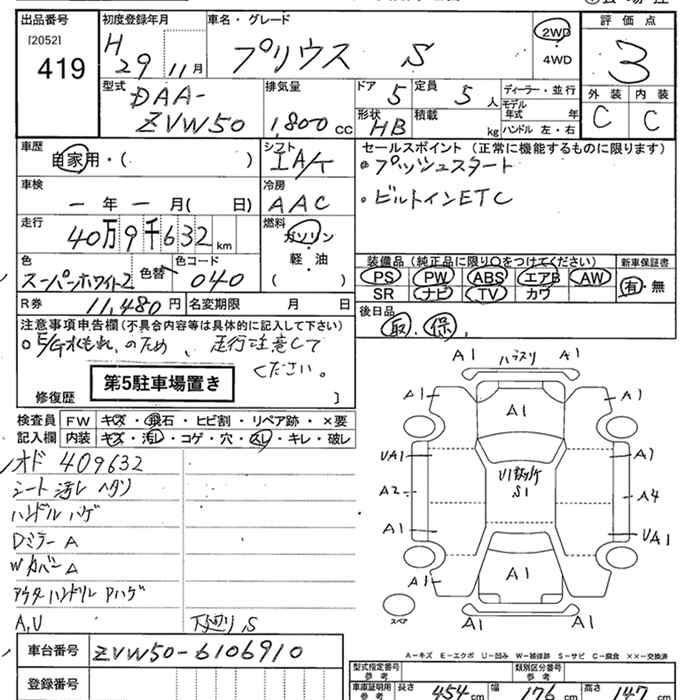 出品番号 初度登録年月 車名・グレード 評価点
[2052] H 29 11月 プリウス S 2WD 3
419 4WD
型式 排気量 ドア 5 定員 5人 ディーラー・並行 外装 内装
DAA- 形状 積載 モデル年式 年 C C
ZVW50 1,800cc HB kg ハンドル 左・右
車歴 シフト セールスポイント (正常に機能するものに限ります)
自家用・( ) IA/T ・プッシュスタート
車検 冷房 ・ビルトインETC
ー年 ー月( 日) AAC
走行 燃料
40万9千632km ガソリン
色 色替 色コード 軽・油 装備品 (純正品に限り○をつけてください) 新車保証書
スーパーホワイト2 040 ( ) PS PW ABS エアB AW 有・無
R券 11,480円 名変期限 月 日 SR ナビ TV カワ
注意事項申告欄 (不具合内容等は具体的に記入して下さい) 後日品
○E/G水もれ、のため、走行注意して 取.保.
ください。
第5駐車場置き
修復歴 ]
検査員 FW キズ・飛石・ヒビ割・リペア跡・×要
記入欄 内装 キズ・汚レ・コゲ・穴・スレ・キレ・破レ
オド 409632
シート汚レ ヘタリ
ハンドルハゲ
Dミラー A
Wカバー A
アウターハンドル Pハゲ
A,U 下廻り S
A1 ハラスリ A1
A1 A1 A1
UA1 A1
S1
A2 A4
A1 UA1
A1 A1
スペア A1 A1
A-キズ E-エクボ U-凹み W-補修跡 S-サビ C-腐食 ××-交換済
車台番号 ZVW50-6106910
登録番号
型式指定番号 参考 類別区分番号 参考
車庫証明用 参考 長さ 454cm 幅 176cm 高さ 147cm